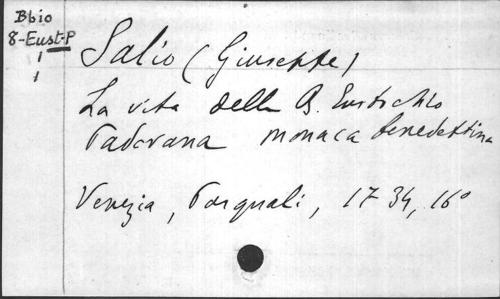 Bbio
8-Eust-P
1
1
Salio (Giuseppe)
La vita della B. Eustochio
Padovana monaca benedettina
Venezia, Pasquali, 1734, 16°